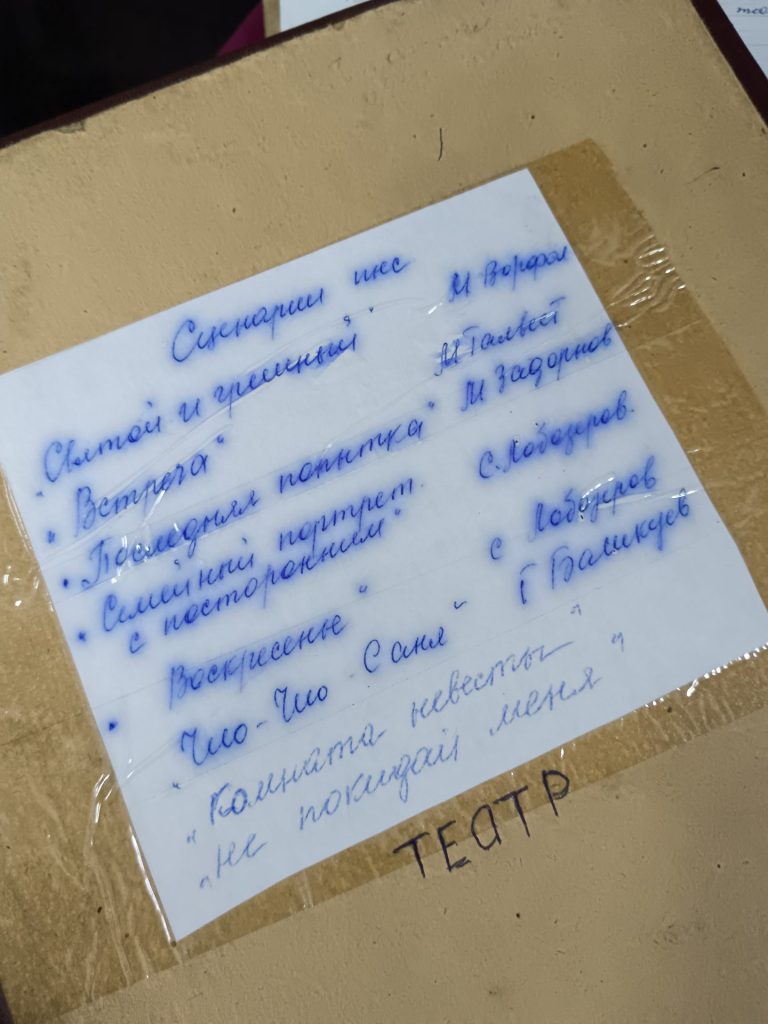 Сценарии пиес
"Святой и грешный" М Ворфол
"Встреча" М Гальвет
• "Последняя попытка" М Задорнов
• "Семейный портрет. С. Лобозеров.
с посторонним"
• Воскресенье" С Лобозеров
"Чио-Чио-Саня" Г Башкуев
"Комната невесты"
"не покидай меня"
ТЕАТР